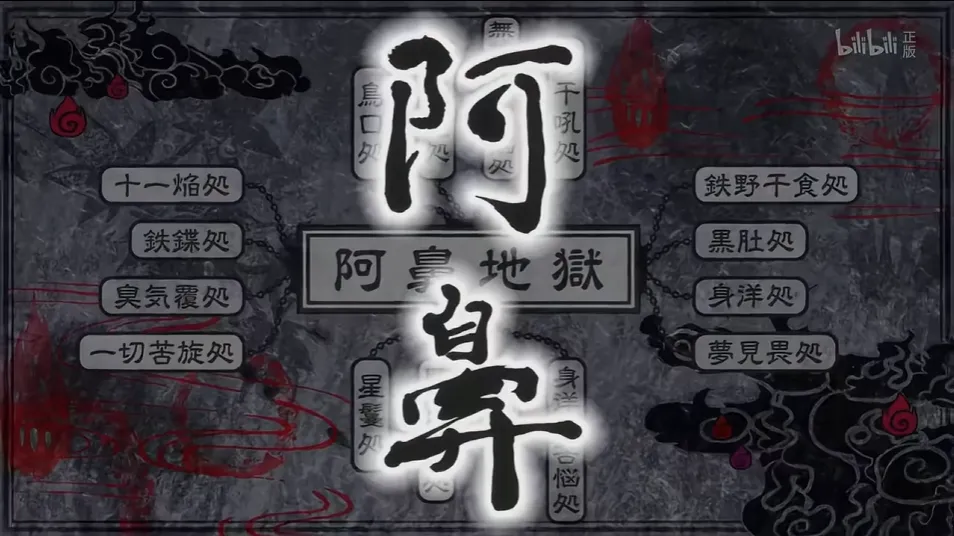 阿鼻
bilibili 正版
無
烏口処
干吼処
十一焔処
鉄鍱処
臭気覆処
一切苦旋処
阿鼻地獄
鉄野干食処
黒肚処
身洋処
夢見畏処
星鬘処
身洋
苦悩処